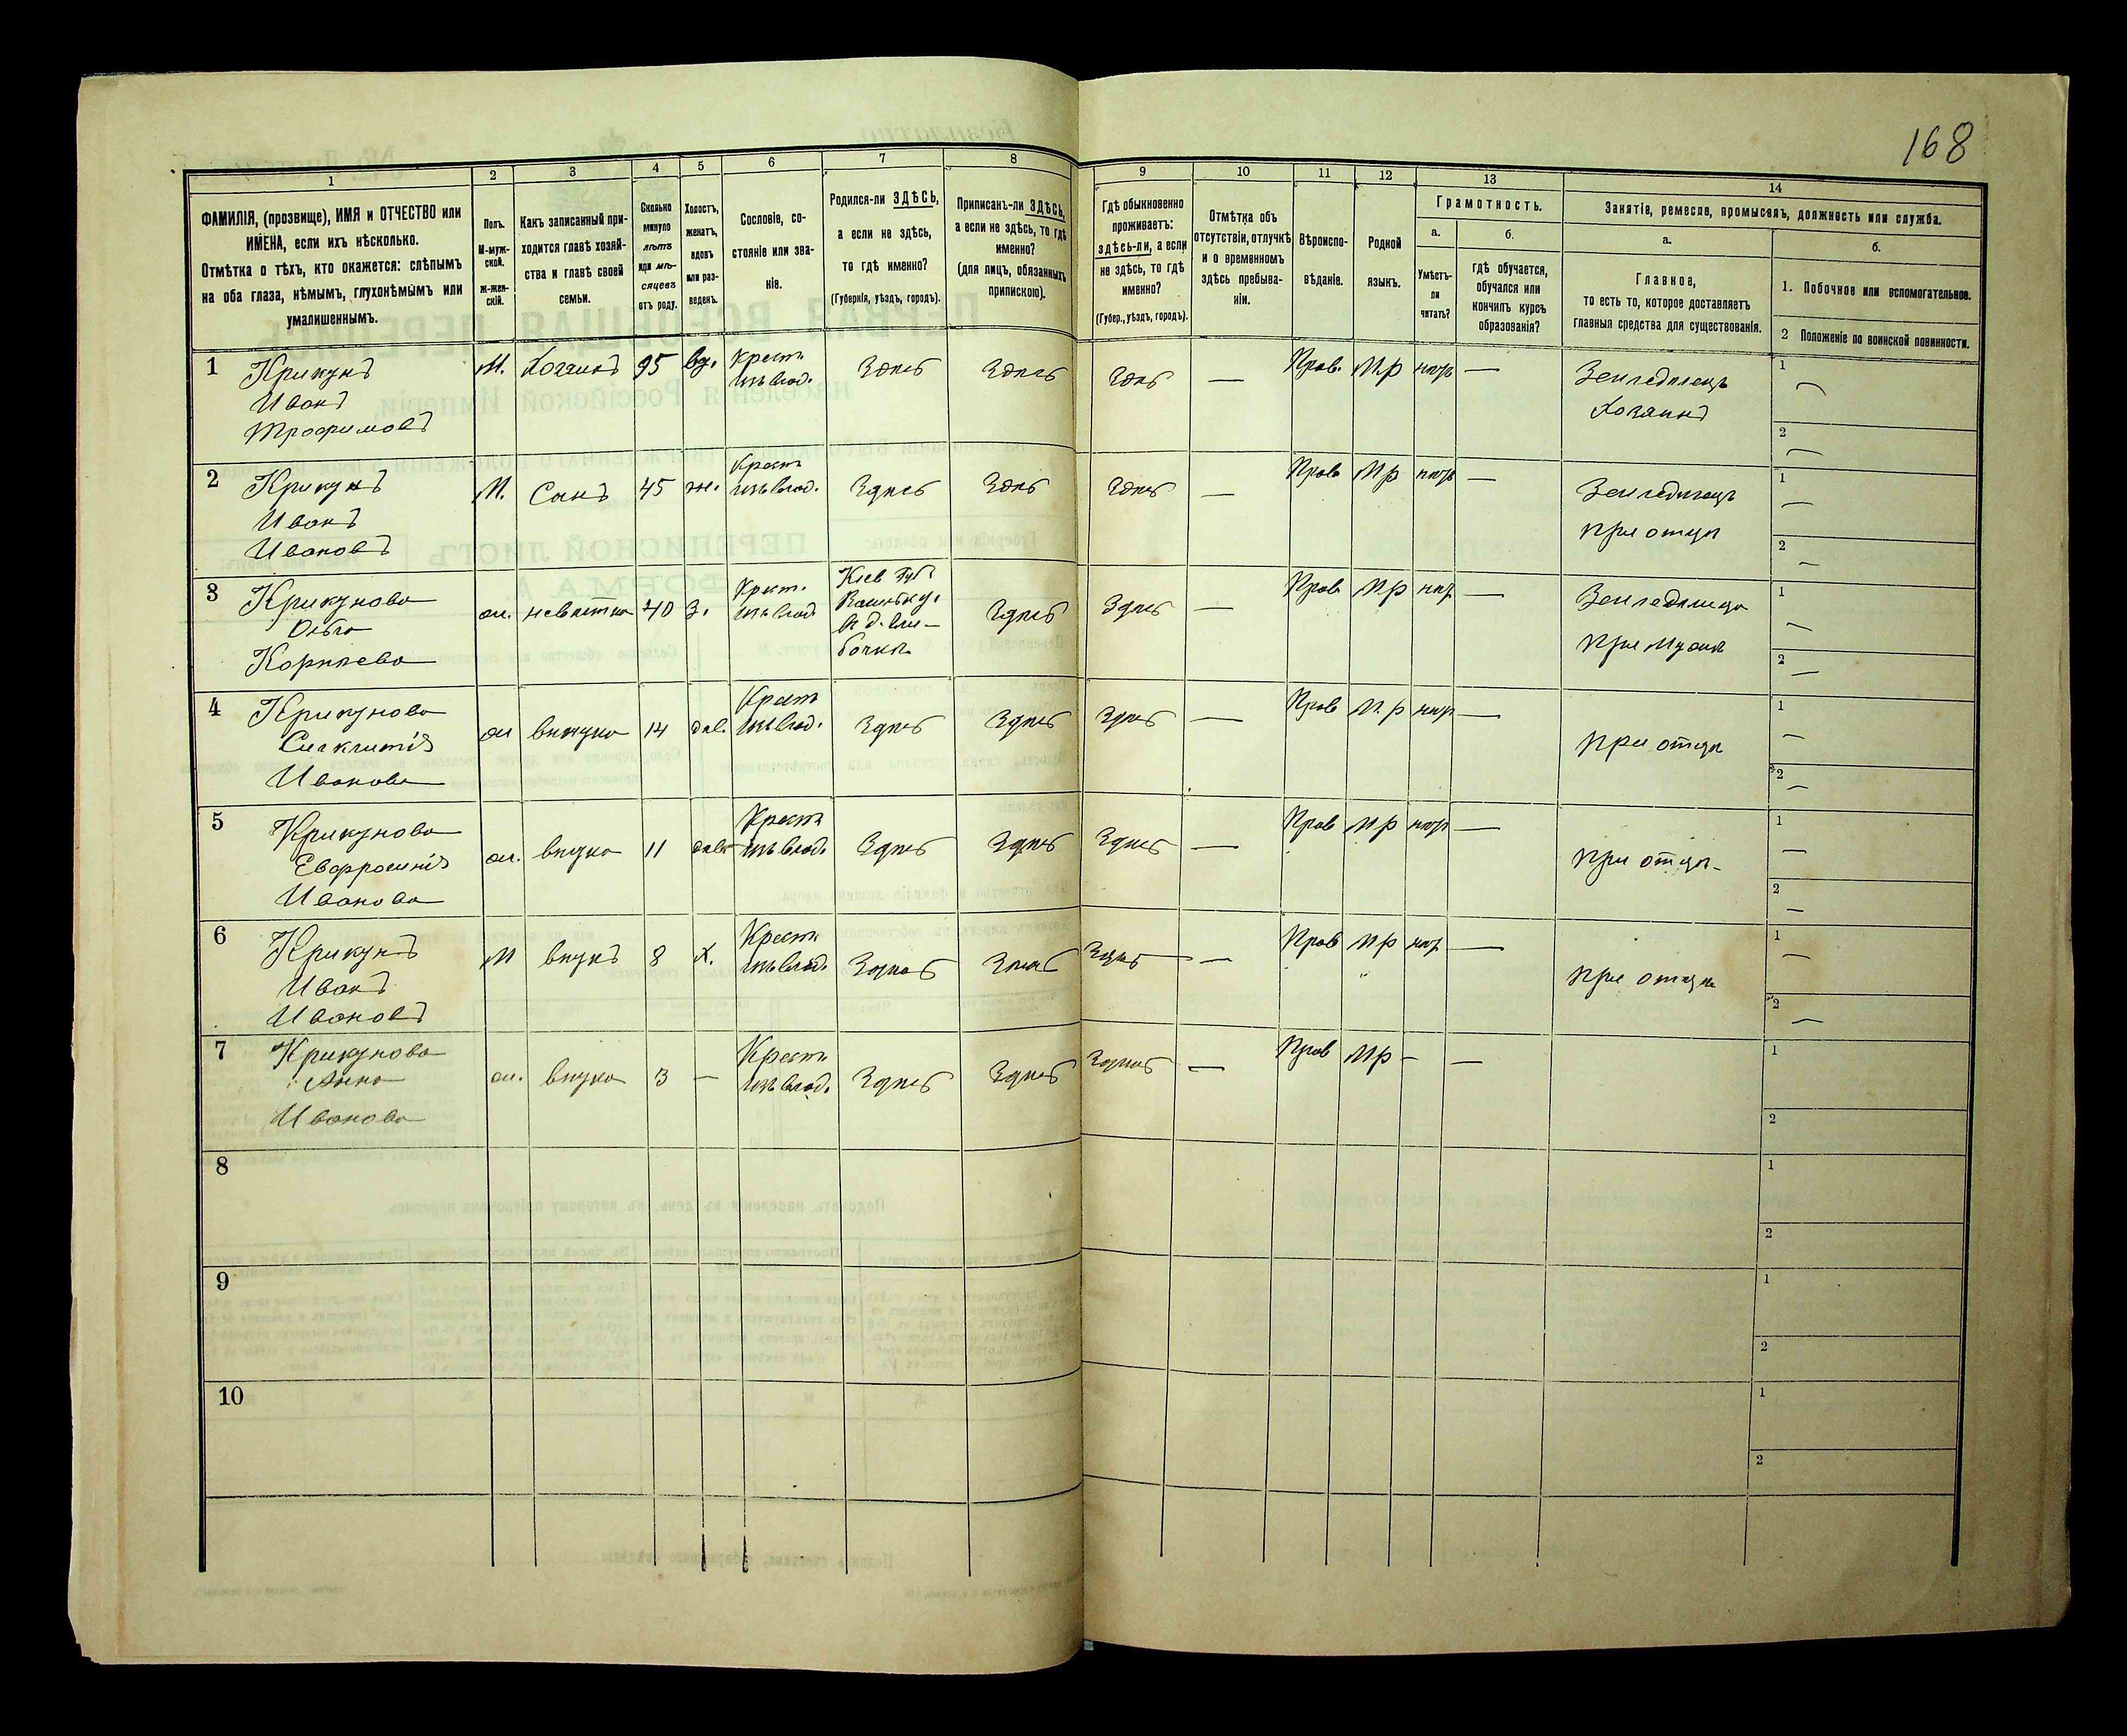 168
1 2 3 4 5 6 7 8 9 10 11 12 13 14
ФАМИЛІЯ, (прозвище), ИМЯ и ОТЧЕСТВО или
ИМЕНА, если ихъ нѣсколько.
Отмѣтка о тѣхъ, кто окажется: слѣпымъ
на оба глаза, нѣмымъ, глухонѣмымъ или
умалишеннымъ.
Полъ.
М-муж-
ской.
Ж-жен-
скій.
Какъ записанный при-
ходится главѣ хозяй-
ства и главѣ своей
семьи.
Сколько
минуло
лѣтъ
или мѣ-
сяцевъ
отъ роду.
Холостъ,
женатъ,
вдовъ
или раз-
веденъ.
Сословіе, со-
стояніе или зва-
ніе.
Родился-ли ЗДѢСЬ,
а если не здѣсь,
то гдѣ именно?
(Губернія, уѣздъ, городъ).
Приписанъ-ли ЗДѢСЬ,
а если не здѣсь, то гдѣ
именно?
(для лицъ, обязанныхъ
припискою).
Гдѣ обыкновенно
проживаетъ:
здѣсь-ли, а если
не здѣсь, то гдѣ
именно?
(Губер., уѣздъ, городъ).
Отмѣтка объ
отсутствіи, отлучкѣ
и о временномъ
здѣсь пребыва-
ніи.
Вѣроиспо-
вѣданіе.
Родной
языкъ.
Грамотность.
а.
Умѣетъ-
ли
читать?
б.
гдѣ обучается,
обучался или
кончилъ курсъ
образованія?
Занятіе, ремесло, промыселъ, должность или служба.
а.
Главное,
то есть то, которое доставляетъ
главныя средства для существованія.
б.
1. Побочное или вспомогательное.
2 Положеніе по воинской повинности.
1 Крикунъ М. Хозяинъ 95 вд. Крест Здѣсь Здѣсь Здѣсь — Прав. Мр нѣт — Земледѣлецъ 1 —
Иванъ изъ влад. Хозяинъ
Трофимовъ 2 —
2 Крикунъ М. Сынъ 45 ж. Крест Здѣсь Здѣсь Здѣсь — Прав Мр нѣт — Земледѣлецъ 1 —
Иванъ изъ влад. при отцѣ
Ивановъ 2 —
3 Крикунова ж. невѣстка 40 з. Крест. Кіев Губ Здѣсь Здѣсь — Прав Мр нѣт — 1 —
изъ влад при мужѣ
Корнѣева 2 —
4 Крикунова ж внука 14 дѣв. Крест Здѣсь Здѣсь Здѣсь — Прав Мр нѣт — при отцѣ 1 —
Синклитія изъ влад.
Иванова 2 —
5 Крикунова ж. внука 11 дѣв Крест Здѣсь Здѣсь Здѣсь — Прав Мр нѣт — при отцѣ 1 —
Евфросинія изъ влад.
Иванова 2 —
6 Крикунъ М внукъ 8 х. Крест Здѣсь Здѣсь Здѣсь — Прав Мр нѣт — при отцѣ 1 —
Иванъ изъ влад.
Ивановъ 2 —
7 Крикунова ж. внука 3 — Крест Здѣсь Здѣсь Здѣсь — Прав Мр — — 1
Анна изъ влад.
Иванова 2
8 1
2
9 1
2
10 1
2